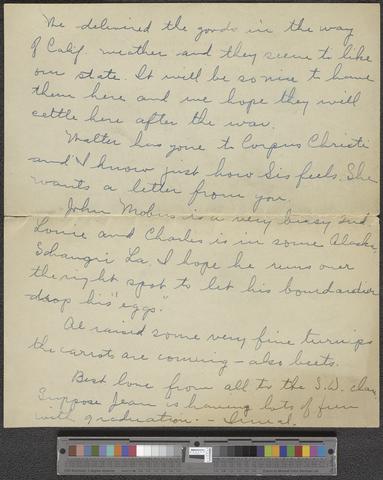 We delivered the goods in the way
of Calif. weather and they seem to like
our state. It will be so nice to have
them here and we hope they will
settle here after the war.
Walter has gone to Corpus Christi
and I know just how Sis feels. She
wants a letter from you.
John Mobus is a very busy
Louie and Charles is in some Alaska
Schangri La. I hope he runs over
the right spot to let his bombardier
drop his "eggs".
Al raised some very fine turnips
the carrots are coming - also beets.
Best love from all to the S.W. clan
Suppose Jean is having lots of fun
with graduation. -